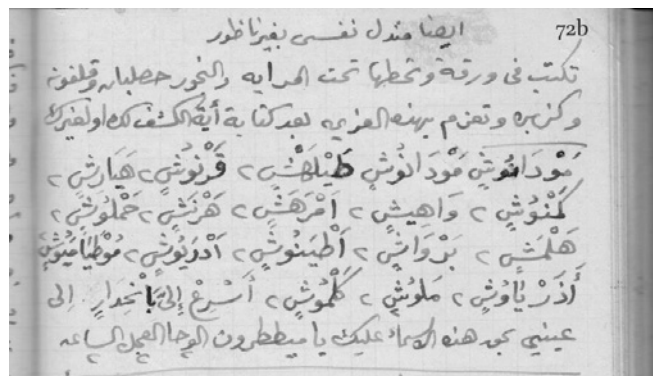 ايضا مندل نفسى بغير ناظور
72b
تكتب فى ورقة وتحطها تحت المرايه والبخور حصلبان وقلفونه
وكزبره وتعزم بهذه العزيمه بعد كتابة أية الكشف لك او لغيرك
مَوْدَانُوشٍ مَوْدَانُوشٍ طَيْلَهَشٍ ٢ قَرْنُوشٍ ٢ هَيَارِشٍ ٢
كَمْنُوشٍ ٢ وَاهِيشٍ ٢ اَمْرَهَشٍ ٢ هَرْنَشٍ ٢ حَمْلُوشٍ ٢
هَلْمَشٍ ٢ بَرْوَاشٍ ٢ اَطْيَنُوشٍ ٢ اَدْرَيُوشٍ ٢
أَذَرْيَاوُشٍ ٢ مَلُوشٍ ٢ كَلْمُوشٍ ٢ أَسْرِعْ إِلَىَّ بِانْحِدَارٍ إلى
عينيي بحق هذه الاسماء عليك يا ميططرون الوحا العجل الساعه